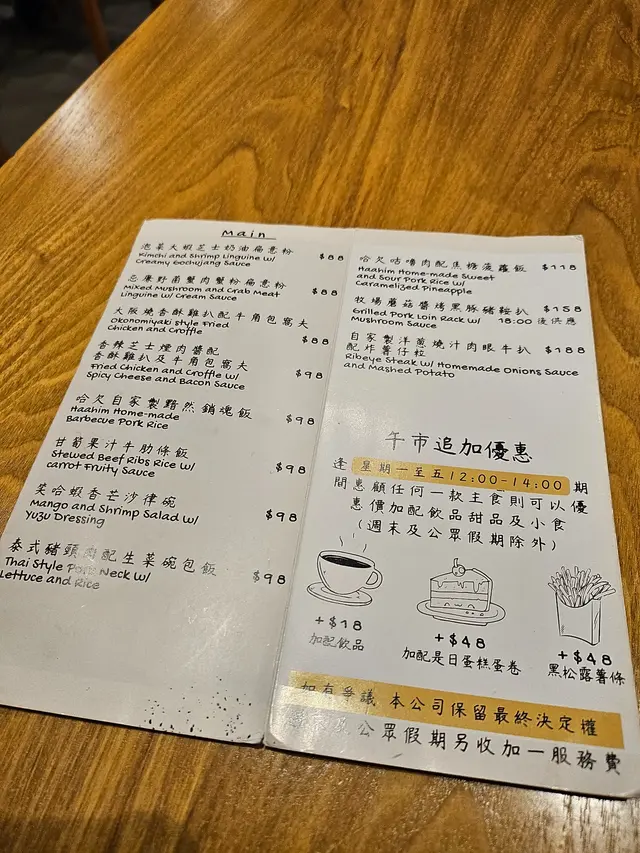 Main
泡菜大蝦芝士奶油扁意粉
Kimchi and Shrimp Linguine w/ $88
Creamy Gochujang Sauce
忘康野菌蟹肉蟹粉扁意粉
Mixed Mushroom and Crab Meat $88
Linguine w/ Cream Sauce
大阪燒香酥雞扒配牛角包窩夫
Okonomiyaki style Fried $88
Chicken and Croffle
香辣芝士煙肉醬配
香酥雞扒及牛角包窩夫
Fried Chicken and Croffle w/ $98
Spicy Cheese and Bacon Sauce
哈欠自家製黯然銷魂飯
Haahim Home-made $98
Barbecue Pork Rice
甘荀果汁牛肋條飯
Stewed Beef Ribs Rice w/ $98
carrot Fruity Sauce
笑哈蝦香芒沙律碗
Mango and Shrimp Salad w/ $98
Yuzu Dressing
泰式豬頸肉配生菜碗包飯
Thai Style Pork Neck w/ $98
Lettuce and Rice
哈欠咕嚕肉配焦糖菠蘿飯 $118
Haahim Home-made Sweet
and Sour Pork Rice w/
Caramelized Pineapple
牧場蘑菇醬烤黑豚豬鞍扒 $158
Grilled Pork Loin Rack w/ 18:00後供應
Mushroom Sauce
自家製洋蔥燒汁肉眼牛扒 $188
配炸薯仔粒
Ribeye Steak w/ Homemade Onions Sauce
and Mashed Potato
午市追加優惠
逢星期一至五12:00-14:00期
間惠顧任何一款主食則可以優
惠價加配飲品甜品及小食
(週末及公眾假期除外)
+$18
加配飲品
+$48
加配是日蛋糕蛋卷
+$48
黑松露薯條
如有爭議 本公司保留最終決定權
公眾假期另收加一服務費